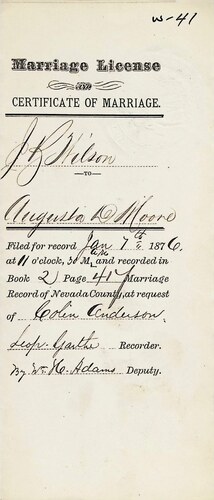 w-41
Marriage License
AND
CERTIFICATE OF MARRIAGE.
J. R. Wilson
—TO—
Augusta D. Moore
Filed for record Jan 7th 1876,
at 11 o'clock, A M, and recorded in
min
Book 2 Page 417 Marriage
Record of Nevada County, at request
of Colin Anderson.
Leop. Garthe Recorder.
By Wm. H. Adams Deputy.